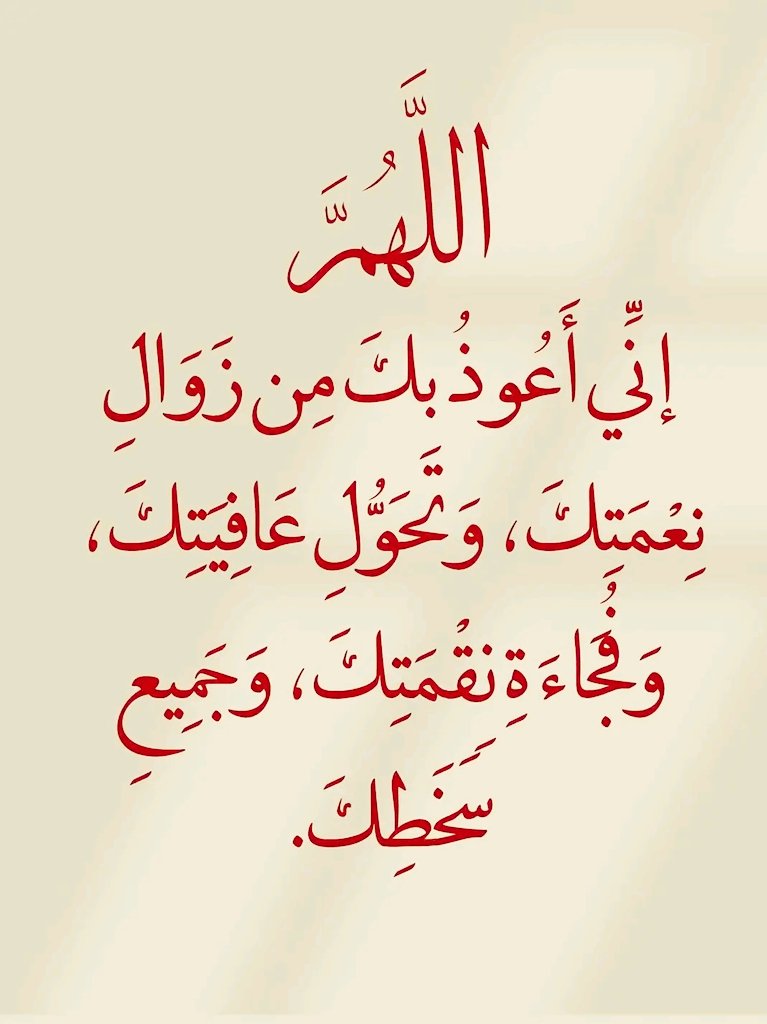 اللَّهُمَّ
إنِّي أَعُوذُ بكَ مِن زَوَالِ
نِعْمَتِكَ، وَتَحَوُّلِ عَافِيَتِكَ،
وَفُجَاءَةِ نقْمَتِكَ، وَجَمِيعِ
سَخَطِكَ.